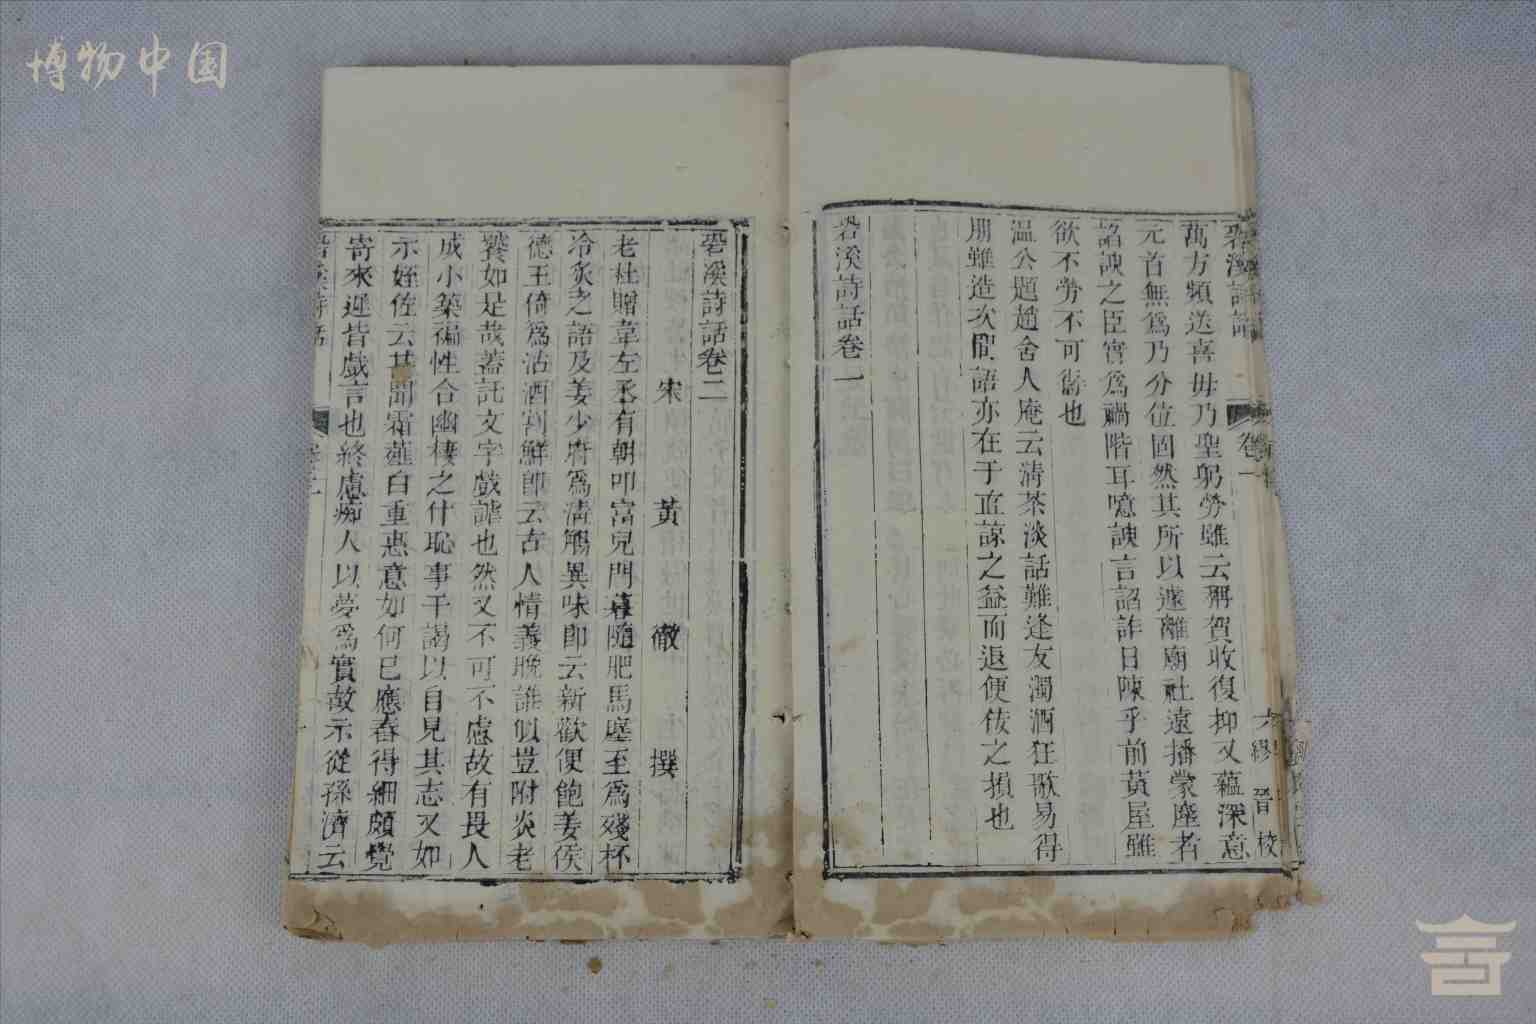 博物中国
萬方頻送喜毋乃聖躬勞雖云稱賀收復抑又蘊深意
元首無爲乃分位固然其所以遽離廟社遠播蒙塵者
諂諛之臣實爲禍階耳噫諛言詔詐日陳乎前黃屋雖
欲不勞不可得也
溫公題趙舍人庵云清茶淡話難逢友濁酒狂歌易得
朋雖造次間語亦在于直諒之益而退便佞之損也
䂬溪詩話卷一
卷一
六繆晉校
䂬溪詩話卷二
宋 黃 徹 撰
老杜贈韋左丞有朝叩富兒門暮隨肥馬塵至爲殘杯
冷炙之語及姜少府爲清觴異味即云新歡便飽姜侯
德王倚爲沽酒割鮮即云古人情義晚誰似豈附炎老
饕如是哉蓋託文字戲謔也然又不可不慮故有畏人
成小築褊性合幽棲之什恥事干謁以自見其志又如
示姪佐云甚聞霜薤白重惠意如何已應舂得細頗覺
寄來遲皆戲言也終慮痴人以夢爲實故示從孫濟云